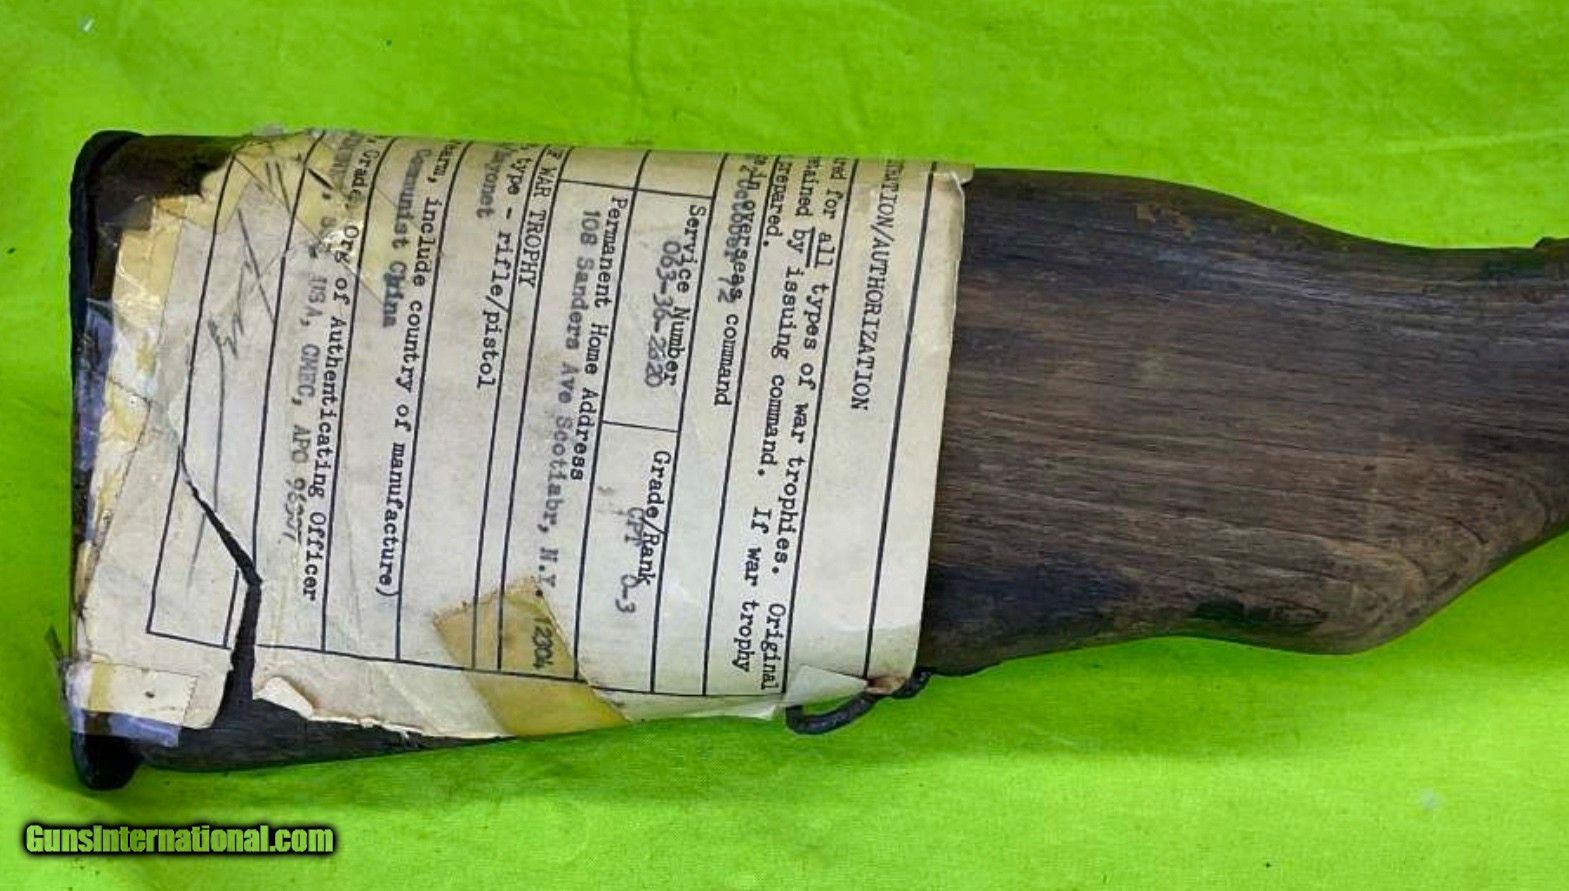 RATION/AUTHORIZATION
for all types of war trophies. Original
tained by issuing command. If war trophy
prepared.
in overseas command
October 72
Service Number
063-36-2620
Grade/Rank
CPT O-3
Permanent Home Address
108 Sanders Ave Scotiabr, N.Y. 12304
OF WAR TROPHY
type - rifle/pistol
Bayonet
include country of manufacture)
Communist China
Grade, Org of Authenticating Officer
USA, CMEC, APO
GunsInternational.com